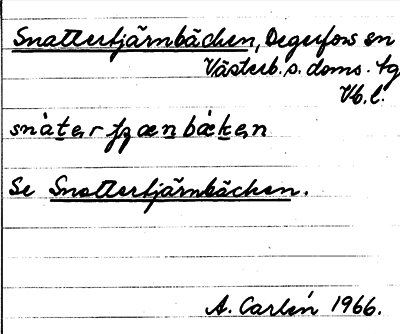 Snattertjärnbäcken, Degerfors sn
Västerb. s. doms. tg
Vb. l.
snàte̠r tjæn̠bàk̠en
Se Snottertjärnbäcken.
A. Carlén 1966.